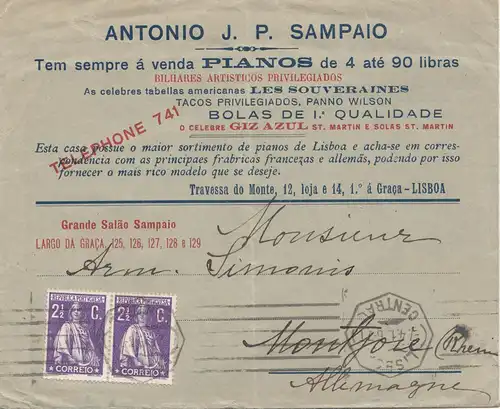 ANTONIO J. P. SAMPAIO
Tem sempre á venda PIANOS de 4 até 90 libras
BILHARES ARTISTICOS PRIVILEGIADOS
As celebres tabellas americanas LES SOUVERAINES
TACOS PRIVILEGIADOS, PANNO WILSON
BOLAS DE 1.ª QUALIDADE
O CELEBRE GIZ AZUL ST. MARTIN E SOLAS ST. MARTIN
TELEPHONE 741
Esta casa possue o maior sortimento de pianos de Lisboa e acha-se em corres-
pondencia com as principaes frabricas francezas e allemãs, podendo por isso
fornecer o mais rico modelo que se deseje.
Travessa do Monte, 12, loja e 14, 1.º á Graça-LISBOA
Grande Salão Sampaio
LARGO DA GRAÇA, 125, 126, 127, 128 e 129
Monsieur
Arm. Simonis
Montjoie (Rhein
Allemagne
REPUBLICA PORTUGUESA REPUBLICA PORTUGUESA
2½ C. 2½ C.
CORREIO CORREIO
LISBOA
CENTRAL